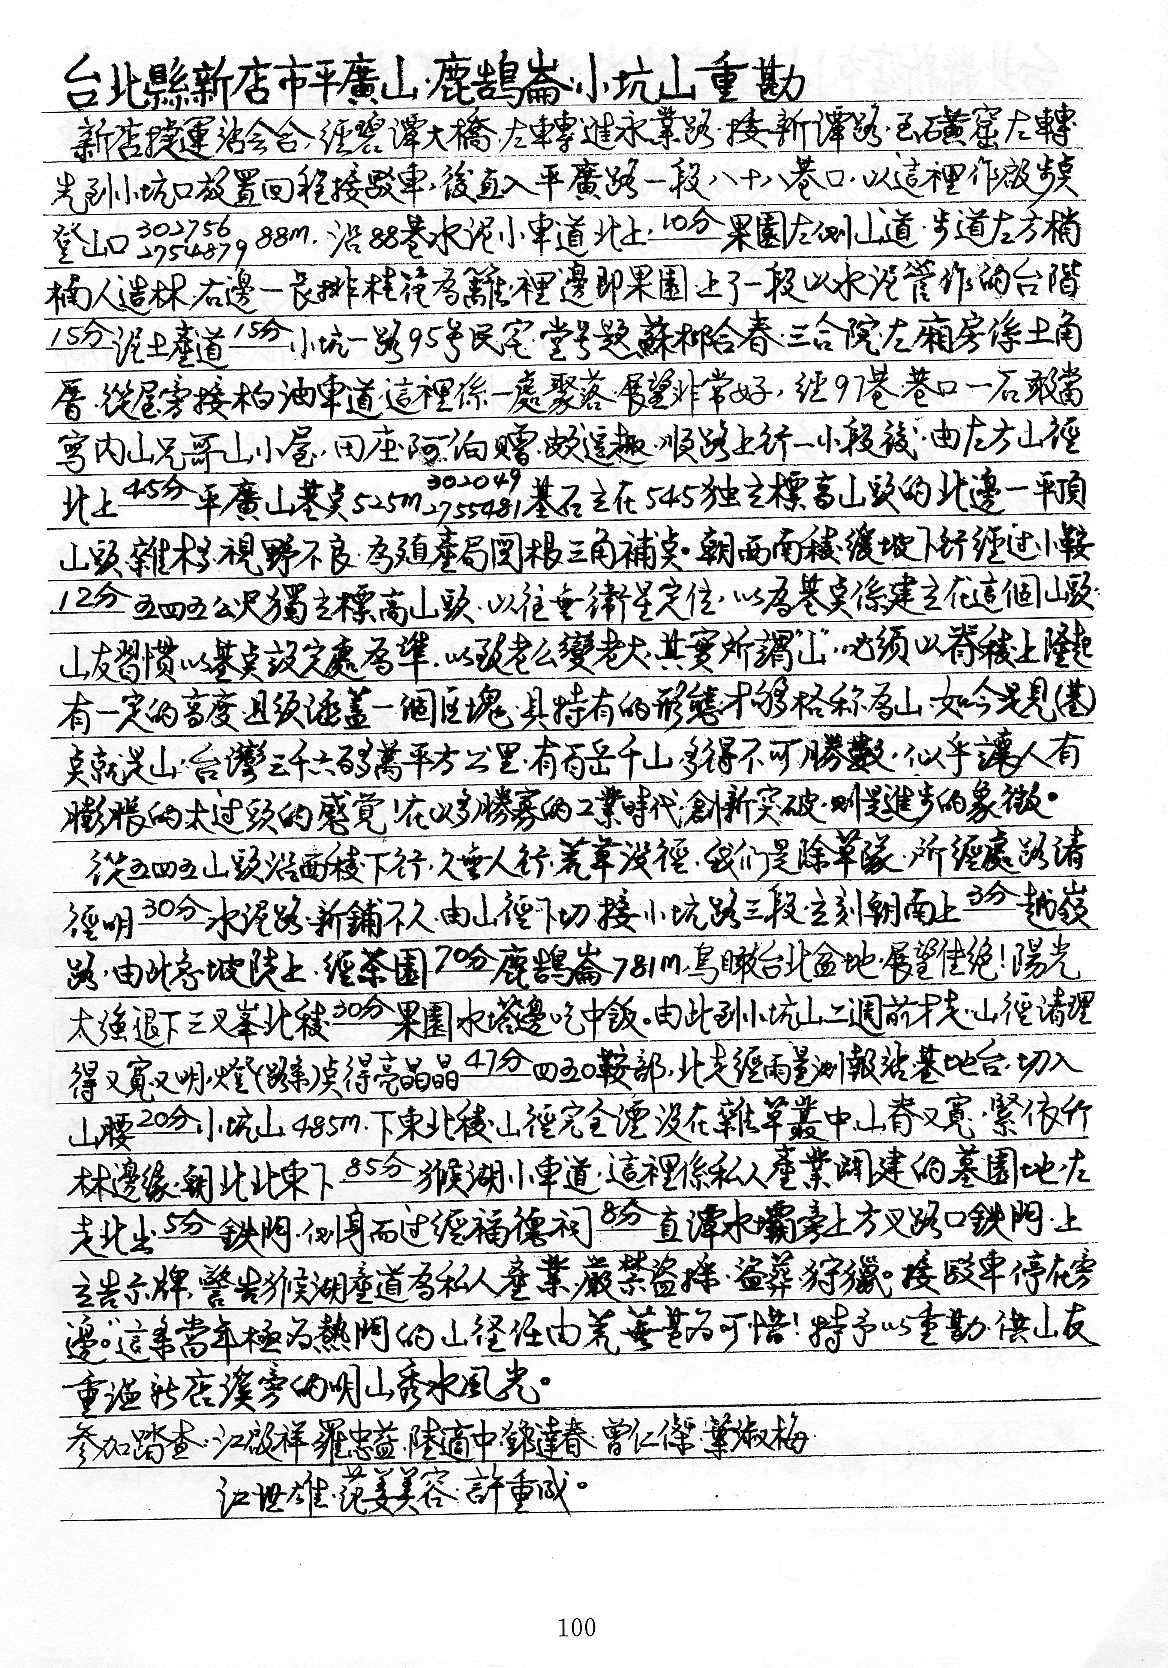 台北縣新店市平廣山·鹿鵠崙·小坑山重勘
新店捷運站会合,經碧潭大橋·左轉進永業路·接新潭路·至磺窟左轉
先到小坑口放置回程接駁車,後直入平廣路一段八十八巷口,以這裡作啟步点
登山口302756 2754879 88m.沿88巷水泥小車道北上,10分果園左側山道·步道左方楠
楠人造林,右邊一長排桂花為籬·裡邊即果園上了一段以水泥管作的台階
15分泥土產道15分小坑一路95号民宅·堂号題蘇柳合春·三合院左廂房係土角
厝·從屋旁接柏油車道·這裡係一處聚落·展望非常好,經97巷巷口一石敢當
寫內山兄哥山小屋,田庄阿伯贈·頗逗趣·順路上行一小段後·由左方山徑
北上45分平廣山基点525m 302049 2755481基石立在545独立標高山頭的北邊一平頂
山頭雜木多視野不良·為殖產局図根三角補点。朝西南稜緩坡下行經过小鞍
12分五四五公尺獨立標高山頭·以往無衛星定位,以為基点係建立在這個山頭·
山友習慣以基点設定處為準,以致老么變老大,其實所謂"山"必須以脊稜上隆起
有一定的高度且須涵蓋一個区塊·具持有的形態才够格称為山·如今是見(基)
点就是山·台灣三千六百多萬平方公里·有百岳千山·多得不可勝數,似乎讓人有
膨脹的太过頭的感覺!在以多勝寡的工業時代·創新突破·則是進步的象徵。
從五四五山頭沿西稜下行,久無人行,荒草没徑,我們是除草隊·所經處路清
徑明30分水泥路·新鋪不久·由山徑下切接小坑路三段·立刻朝南上3分越嶺
路·由此旁坡陡上·經茶園70分鹿鵠崙781m·鳥瞰台北盆地·展望佳绝!陽光
太強退下三叉峯北稜30分果園水塔邊吃中飯。由此到小坑山二週前才走·山徑清理
得又寬又明·燈(路条)点得亮晶晶47分四五0鞍部,北走經雨量測報站·基地台·切入
山腰20分小坑山485m.下東北稜山徑完全湮没在雜草叢中,山脊又寬·緊依竹
林邊缘·朝北北東下85分猴湖小車道·這裡係私人產業闢建的墓園地·左
走北出5分鉄門·側身而过經福德祠8分直潭水壩旁上方叉路口鉄門·上
立告示牌,警告猴湖產道為私人產業·嚴禁盜採·盜葬狩獵。接駁車停在旁
邊。這条當年極為熱鬧的山径任由荒蕪甚為可惜!特予以重勘·供山友
重溫新店溪旁的明山秀水風光。
參加踏查·江啟祥·羅忠益·陸適中·鄧達春·曾仁傑·葉淑梅
江世雄·范姜美容·許重成。
100